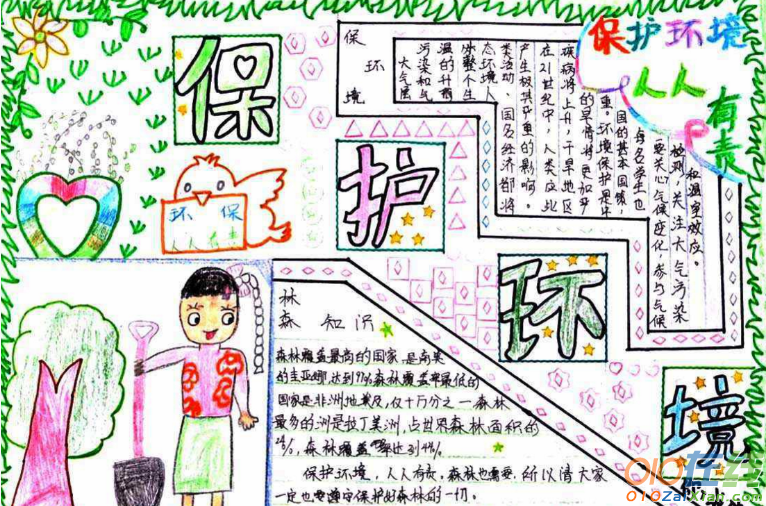 保护环境
人人
有责
保
护
环
境
环保
人人有责
保
环
境
大气层
污染和气
温的升高
整个生
态环境人
类活动、国各经济都将
产生极其严重的影响。
在21世纪中,人类应此
疾病将上升,干旱地区
的旱情将更加严
重。环境保护是中
国的基本国策,
每名学生也
要关心气候变化,参与气候
被测,关注大气污染
和温室效应。
林
森 知识
森林覆盖最高的国家,是南美
的圭亚那,达到97%森林覆盖率最低的
国家是非洲地埃及,仅十万分之一森林
最多的洲是拉丁美洲,占世界森林面积的
24%,森林覆盖率达到44%
保护环境,人人有责,森林也需要,所以请大家
一定也要遵守保护好森林的一切。
010在线
010ZaiXian.com